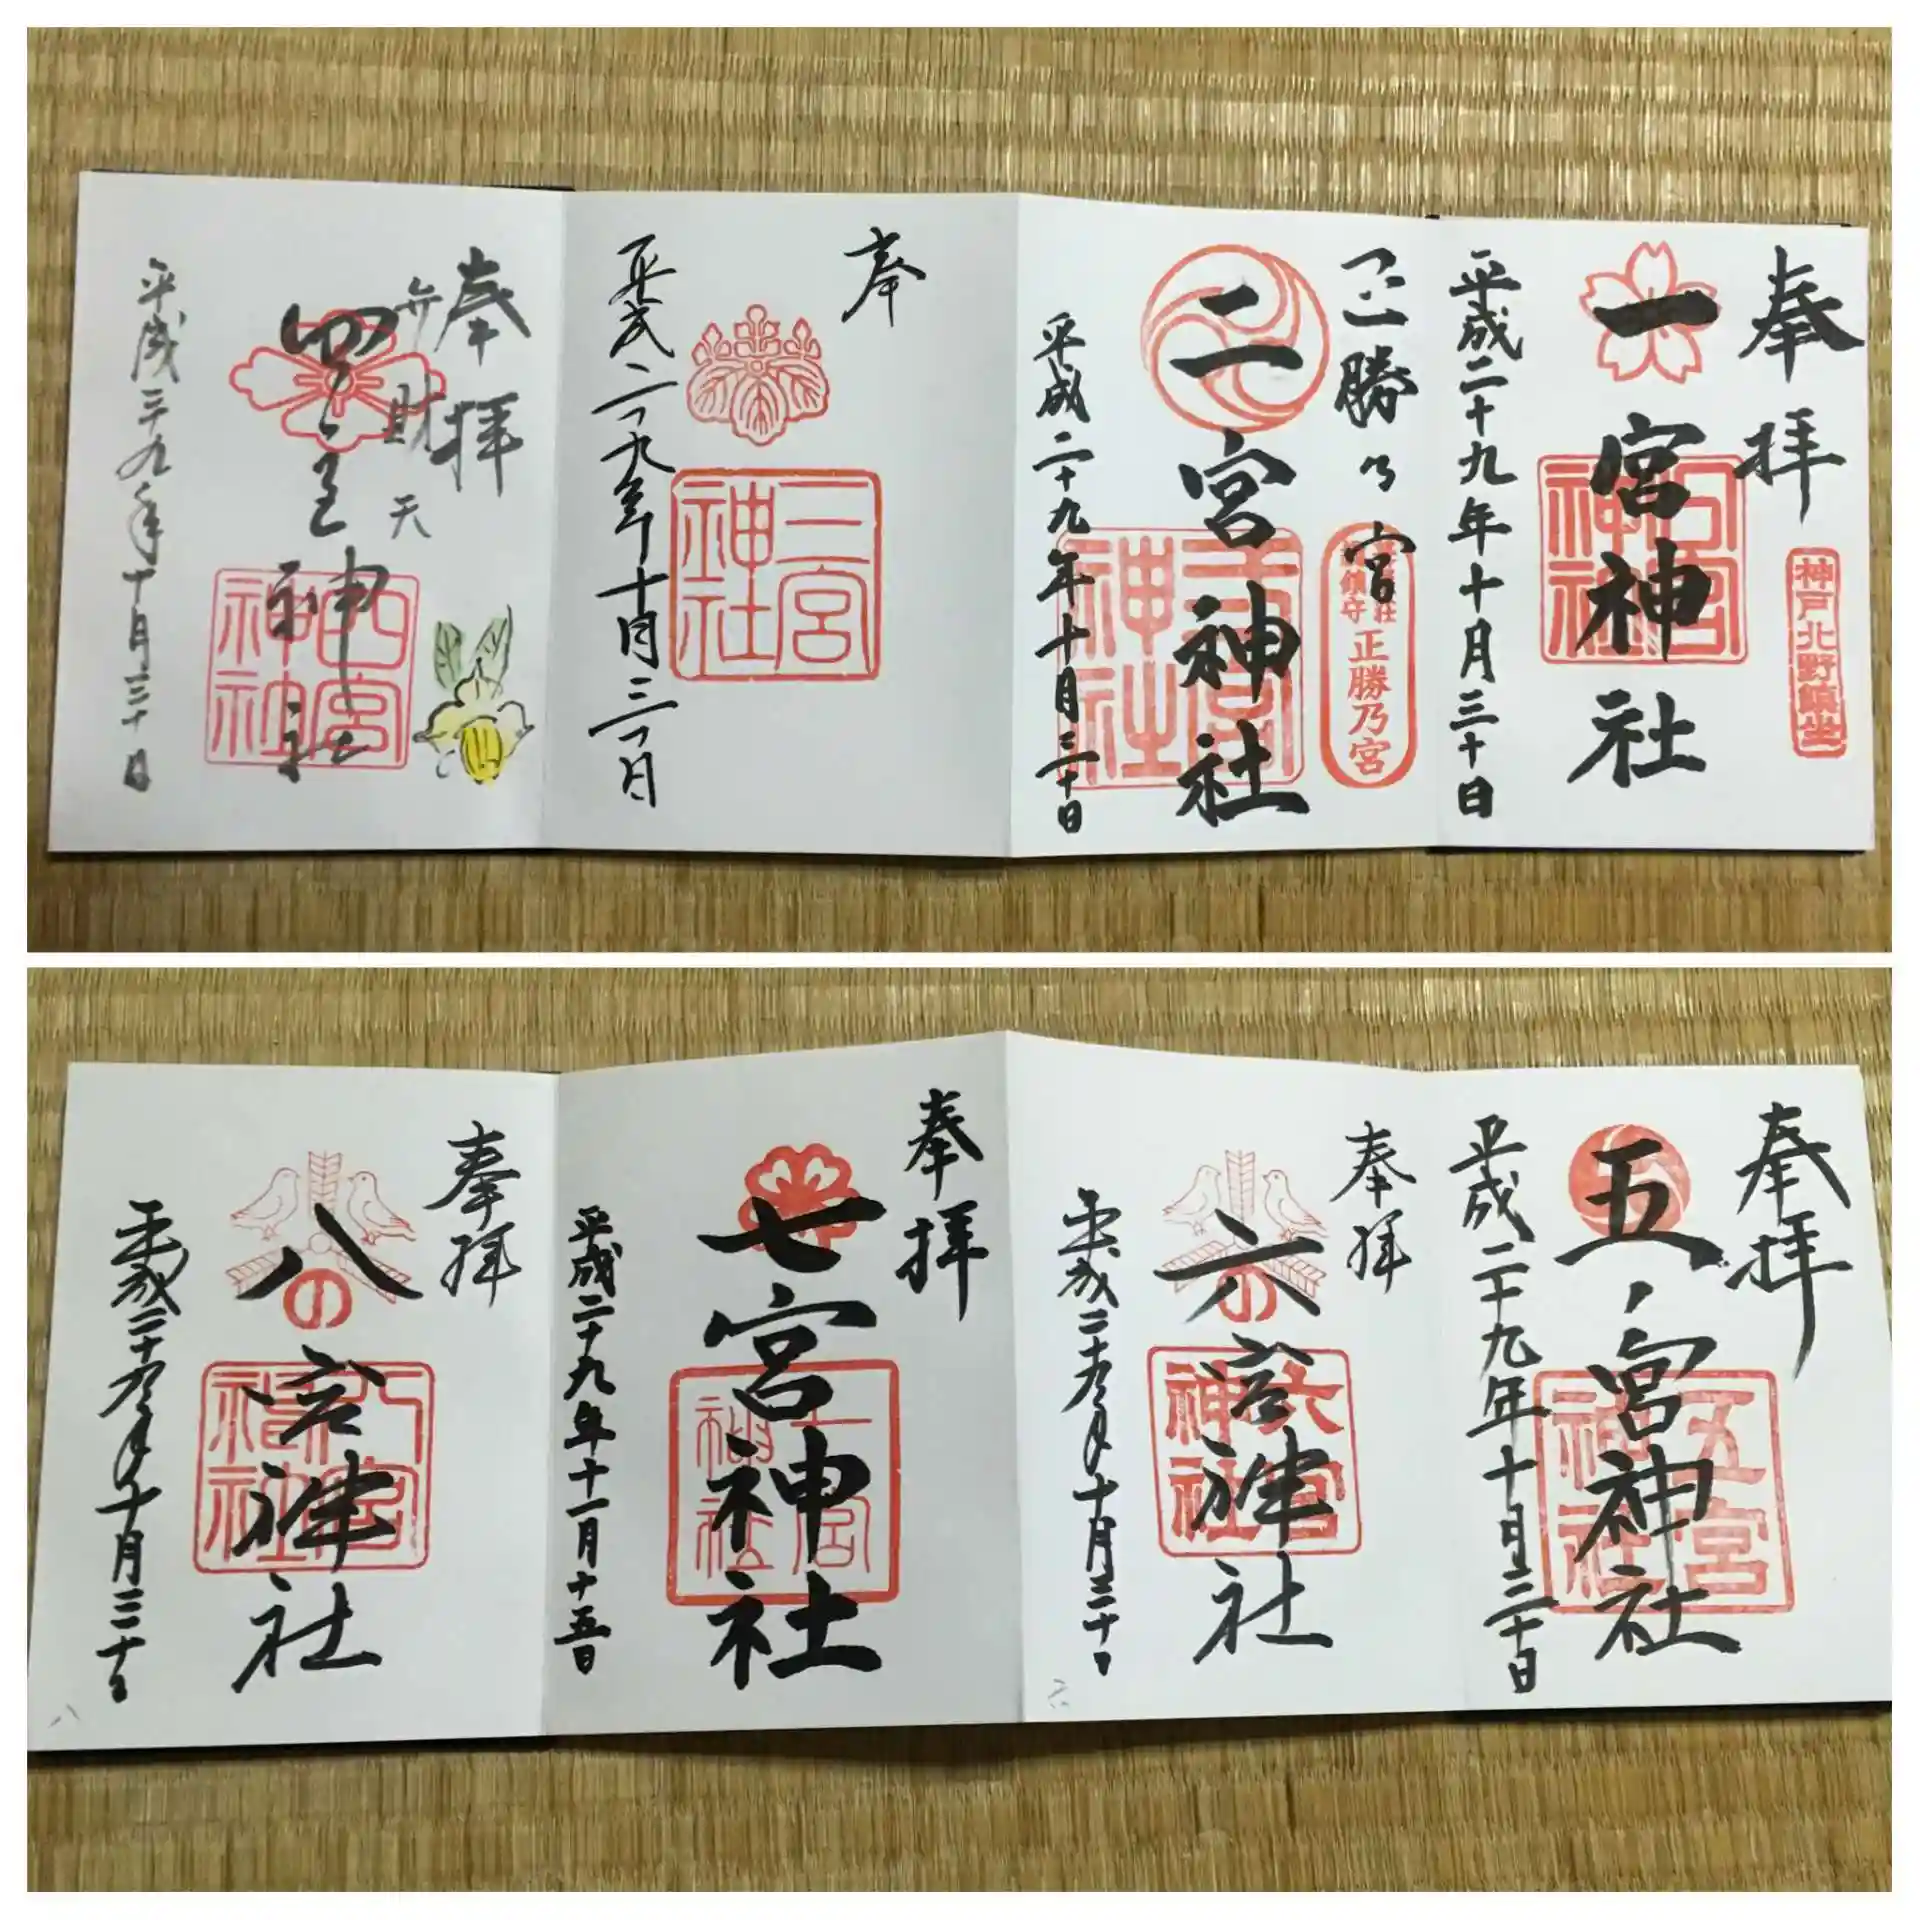 奉拝
神戸北野鎮坐
一宮神社
平成二十九年十月三十日
正勝乃宮
鎮守
正勝乃宮
二宮神社
二宮神社
平成二十九年十月三十日
奉
三宮神社
平成二十九年十月三十日
奉拝
弁財天
四ノ宮神社
四宮神社
平成二十九年十月三十日
奉拝
五ノ宮神社
五宮神社
平成二十九年十月三十日
奉拝
六の宮神社
六宮神社
平成二十九年十月三十日
六
奉拝
七宮神社
七宮神社
平成二十九年十一月十五日
奉拝
八の宮神社
八宮神社
平成二十九年十月三十日
八